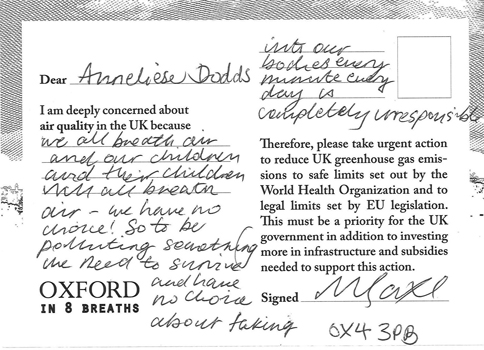 Dear Anneliese Dodds
I am deeply concerned about
air quality in the UK because
we all breath air
and our children
and their children
will all breath
air - we have no
choice! So to be
polluting something
we need to survive
and have
no choice
about taking
into our
bodies every
minute every
day is
completely unresponsible
Therefore, please take urgent action
to reduce UK greenhouse gas emis-
sions to safe limits set out by the
World Health Organization and to
legal limits set by EU legislation.
This must be a priority for the UK
government in addition to investing
more in infrastructure and subsidies
needed to support this action.
Signed
OX4 3PB
OXFORD
IN 8 BREATHS